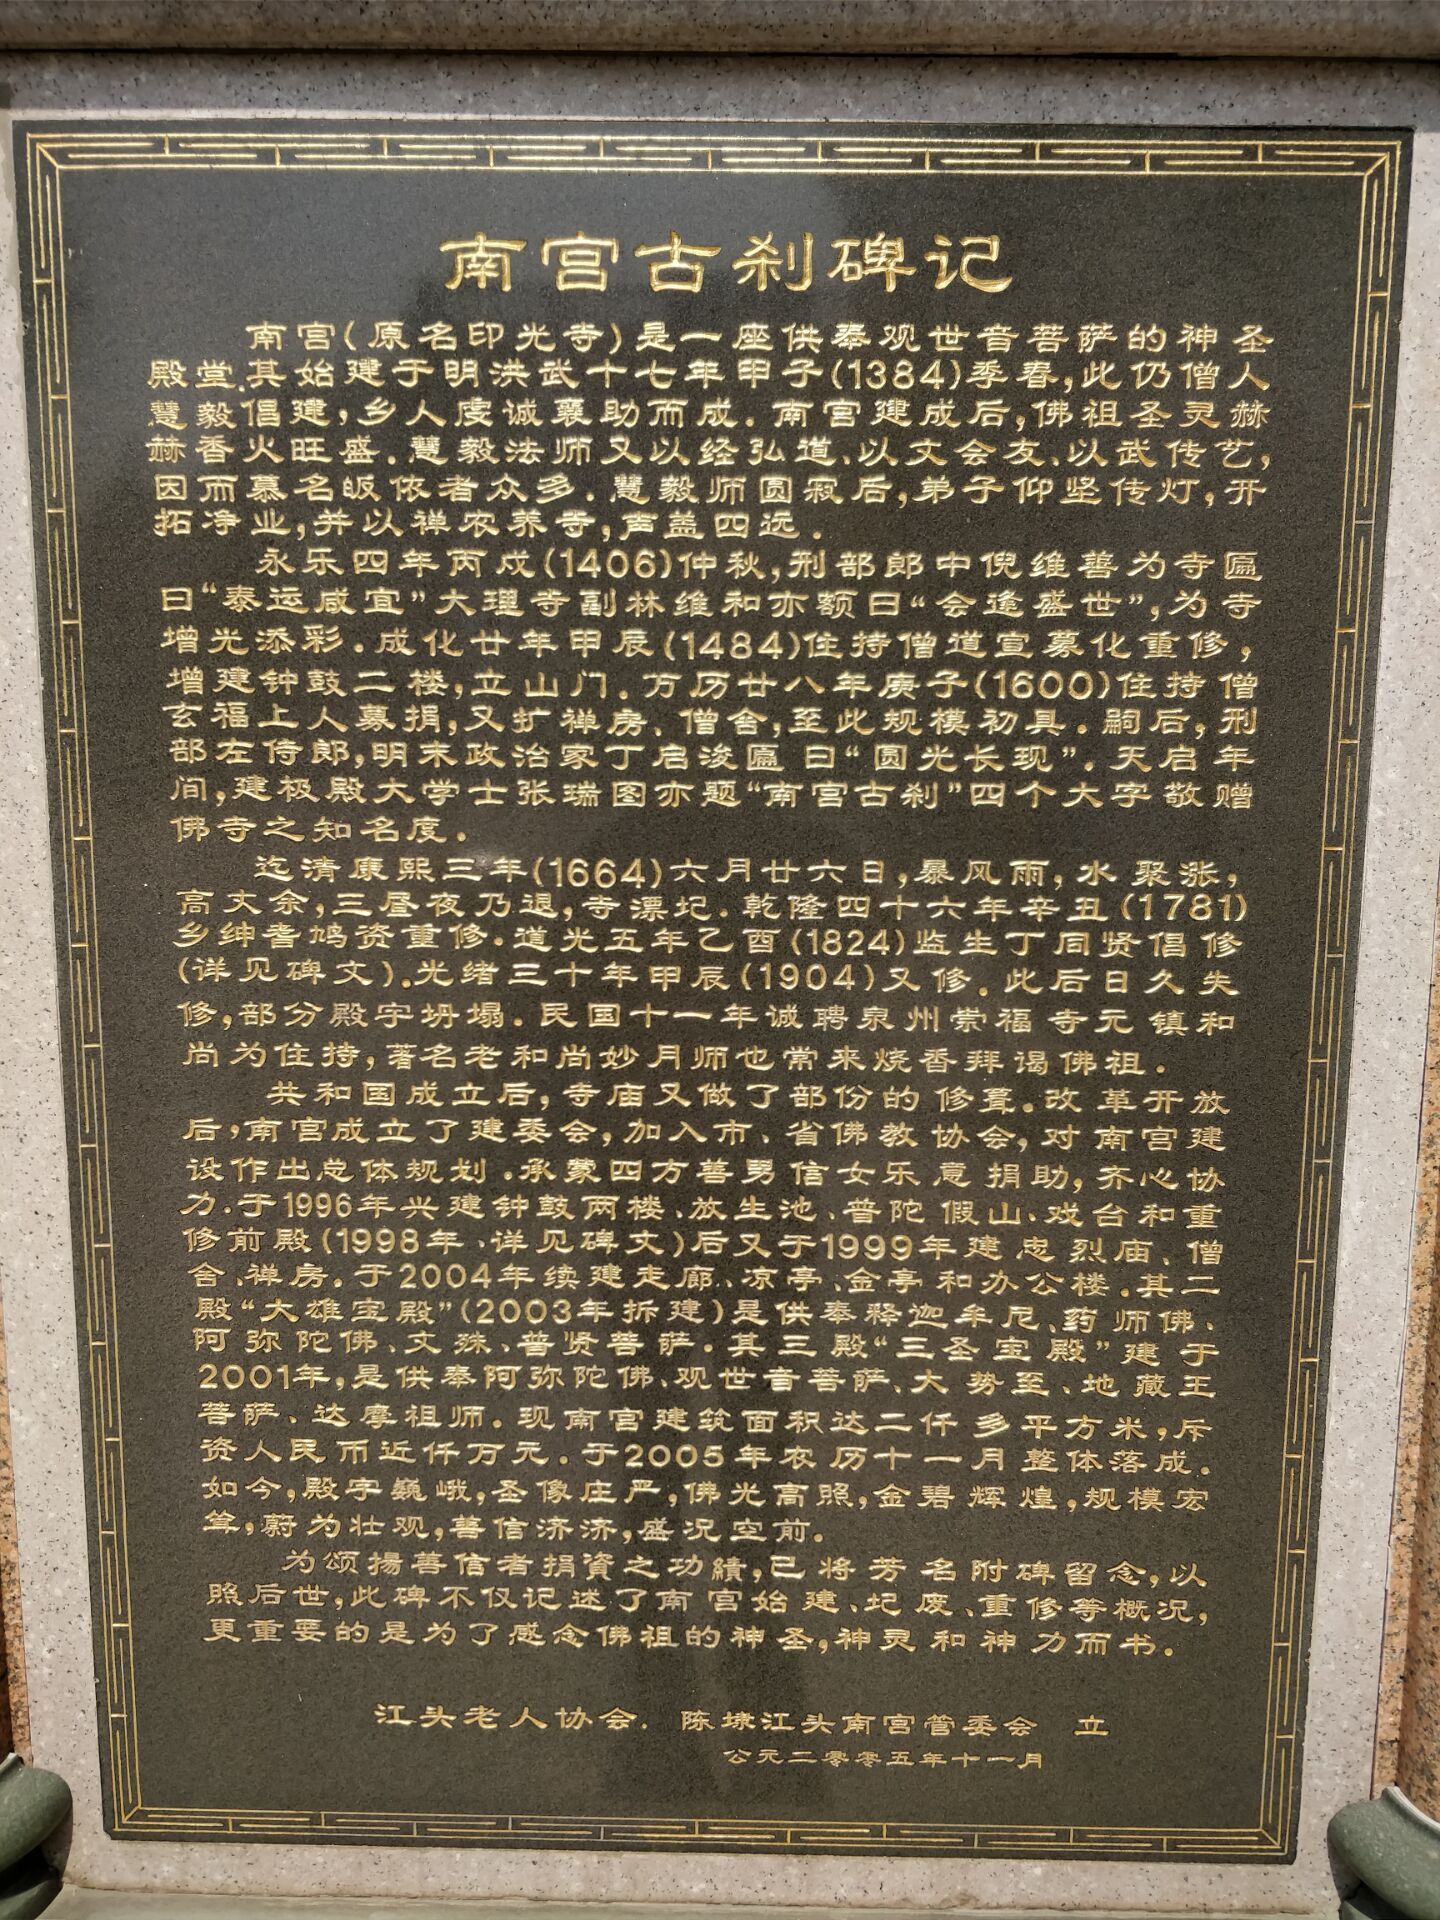 南宫古刹碑记
南宫(原名印光寺)是一座供奉观世音菩萨的神圣
殿堂.其始建于明洪武十七年甲子(1384)季春,此仍僧人
慧毅倡建,乡人虔诚襄助而成.南宫建成后,佛祖圣灵赫
赫香火旺盛.慧毅法师又以经弘道、以文会友、以武传艺,
因而慕名皈依者众多.慧毅师圆寂后,弟子仰坚传灯,开
拓净业,并以禅农养寺,声盖四远.
永乐四年丙戍(1406)仲秋,刑部郎中倪维善为寺匾
曰“泰运咸宜”大理寺副林维和亦额曰“会逢盛世”,为寺
增光添彩.成化廿年甲辰(1484)住持僧道宣募化重修,
增建钟鼓二楼,立山门.万历廿八年庚子(1600)住持僧
玄福上人募捐,又扩禅房、僧舍,至此规模初具.嗣后,刑
部左侍郎,明末政治家丁启浚匾曰“圆光长现”.天启年
间,建极殿大学士张瑞图亦题“南宫古刹”四个大字敬赠
佛寺之知名度.
迄清康熙三年(1664)六月廿六日,暴风雨,水聚涨,
高丈余,三昼夜乃退,寺漂圮.乾隆四十六年辛丑(1781)
乡绅耆鸠资重修.道光五年乙酉(1824)监生丁同贤倡修
(详见碑文).光绪三十年甲辰(1904)又修.此后日久失
修,部分殿宇坍塌.民国十一年诚聘泉州崇福寺元镇和
尚为住持,著名老和尚妙月师也常来烧香拜谒佛祖.
共和国成立后,寺庙又做了部份的修葺.改革开放
后,南宫成立了建委会,加入市、省佛教协会,对南宫建
设作出总体规划.承蒙四方善男信女乐意捐助,齐心协
力.于1996年兴建钟鼓两楼、放生池、普陀假山、戏台和重
修前殿(1998年、详见碑文)后又于1999年建忠烈庙、僧
舍、禅房.于2004年续建走廊、凉亭、金亭和办公楼.其二
殿“大雄宝殿”(2003年拆建)是供奉释迦牟尼、药师佛、
阿弥陀佛、文殊、普贤菩萨.其三殿“三圣宝殿”建于
2001年,是供奉阿弥陀佛、观世音菩萨、大势至、地藏王
菩萨、达摩祖师.现南宫建筑面积达二仟多平方米,斥
资人民币近仟万元.于2005年农历十一月整体落成.
如今,殿宇巍峨,圣像庄严,佛光高照,金碧辉煌,规模宏
耸,蔚为壮观,善信济济,盛况空前.
为颂揚善信者捐資之功績,已将芳名附碑留念,以
照后世,此碑不仅记述了南宫始建、圮废、重修等概况,
更重要的是为了感念佛祖的神圣,神灵和神力而书.
江头老人协会.陈埭江头南宫管委会 立
公元二零零五年十一月